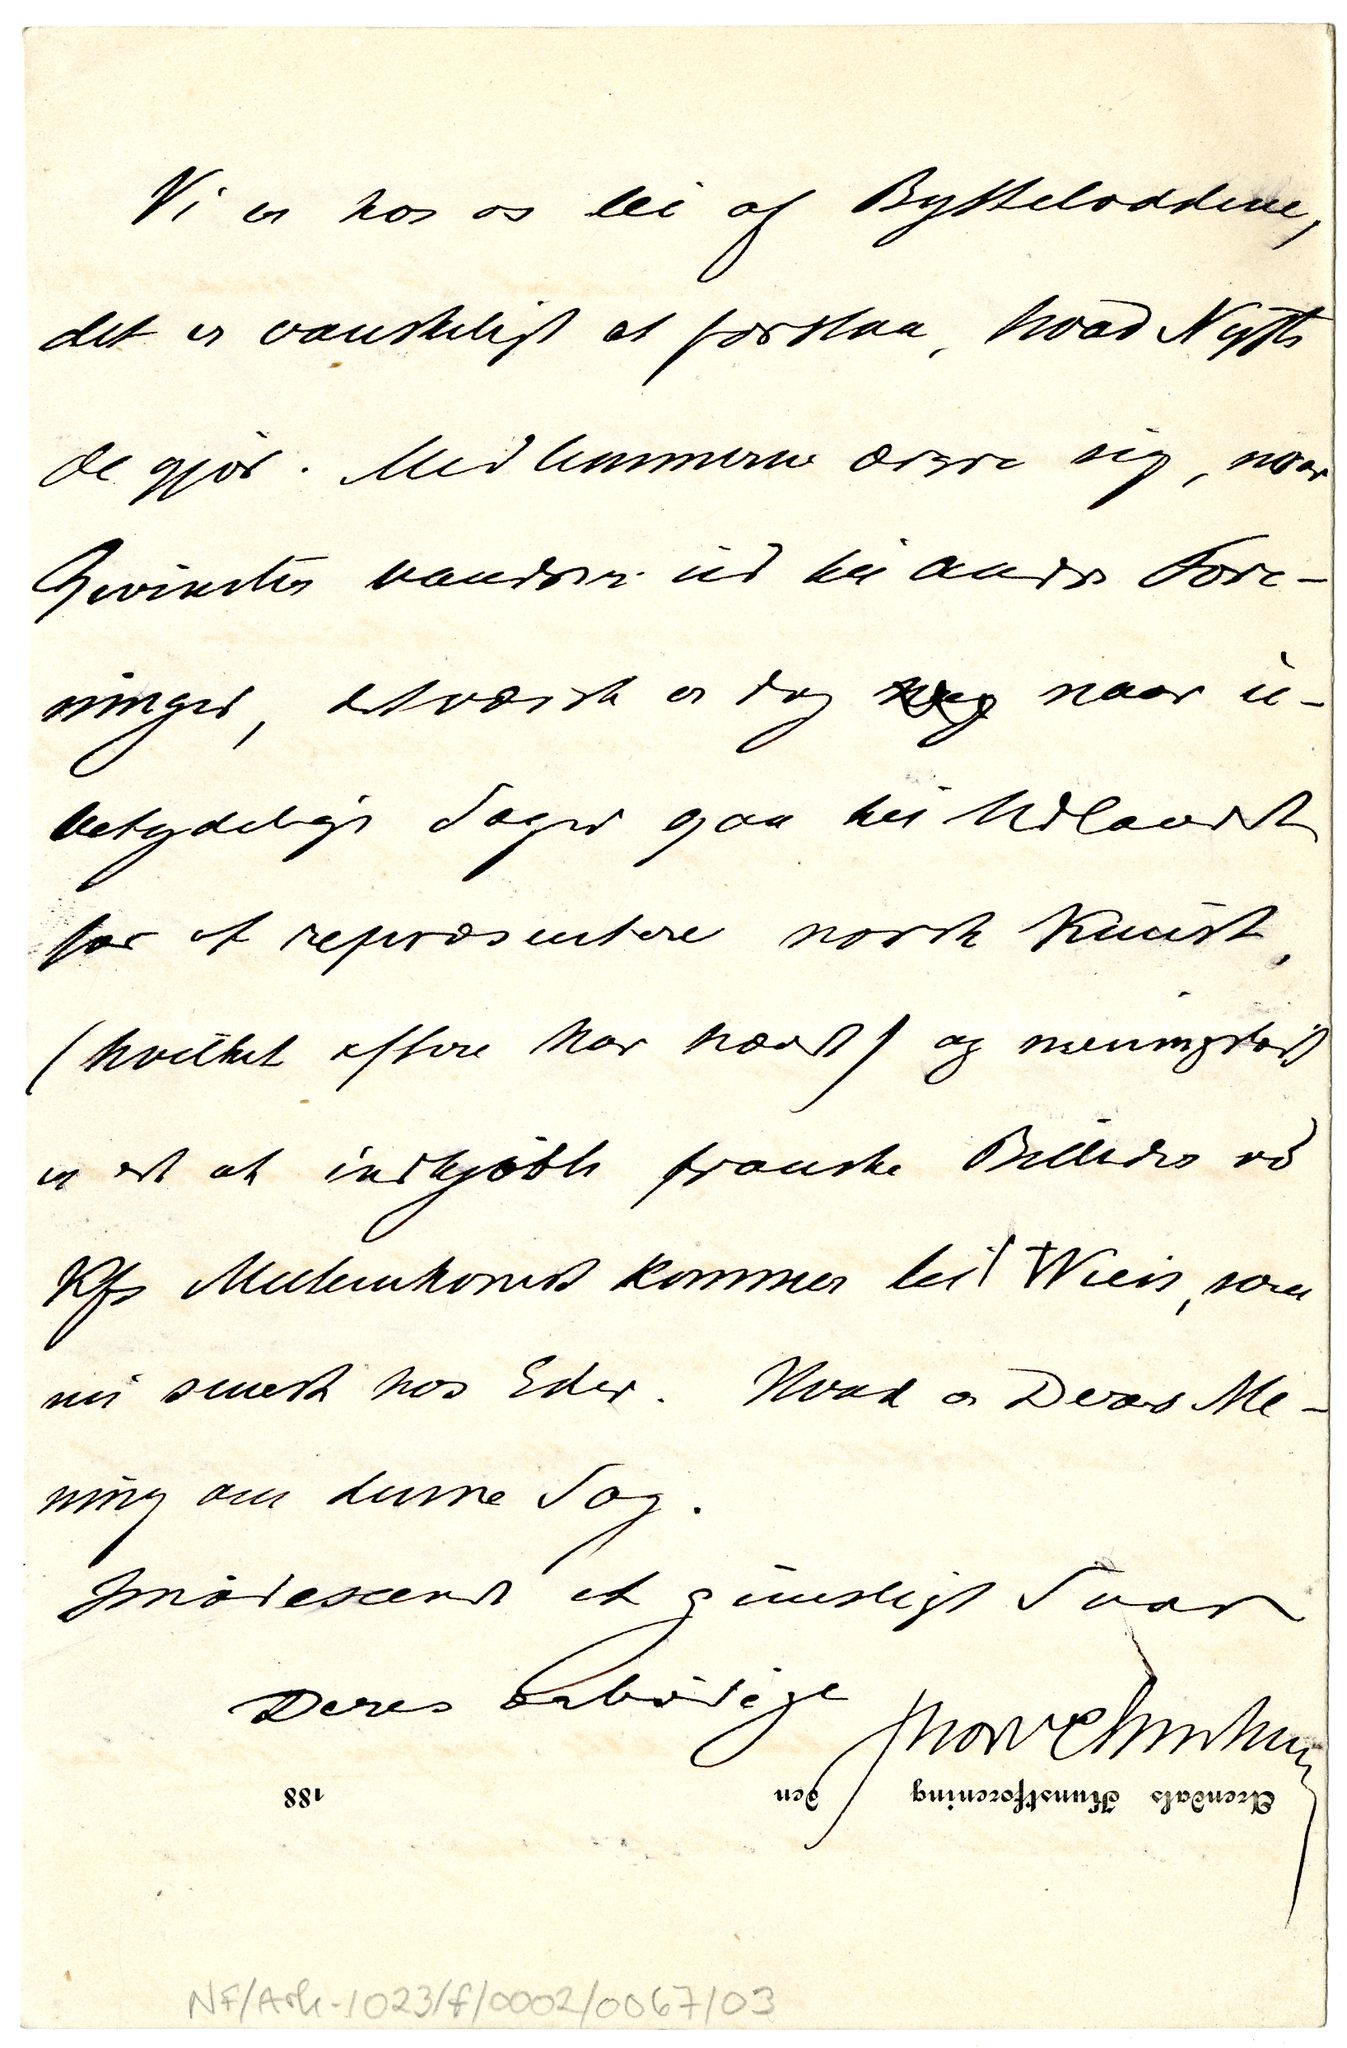 Vi er hos os lei af Bytteloddene,
det er vanskeligt at forstaa, hvad Nytte
de gjör. Medlemmerne ærgre sig, naar
Gevinster vandrer ud til andre Fore-
ninger, det værste er dog naar u-
betydelige Sager gaa til Udlandet
for at repræsentere norsk Kunst,
(hvilket oftere har hændt) og meningslöst
er det at indkjöbte franske Billeder ved
Kfs Mellemkomst kommer til Wien, som
nu senest hos Eder. Hvad er Deres Me-
ning om denne Sag.
Imödeseende et gunstigt Svar
Deres ærbödige
Arendals Kunstforening den 188
NF/Ark-1023/f/0002/0067/03